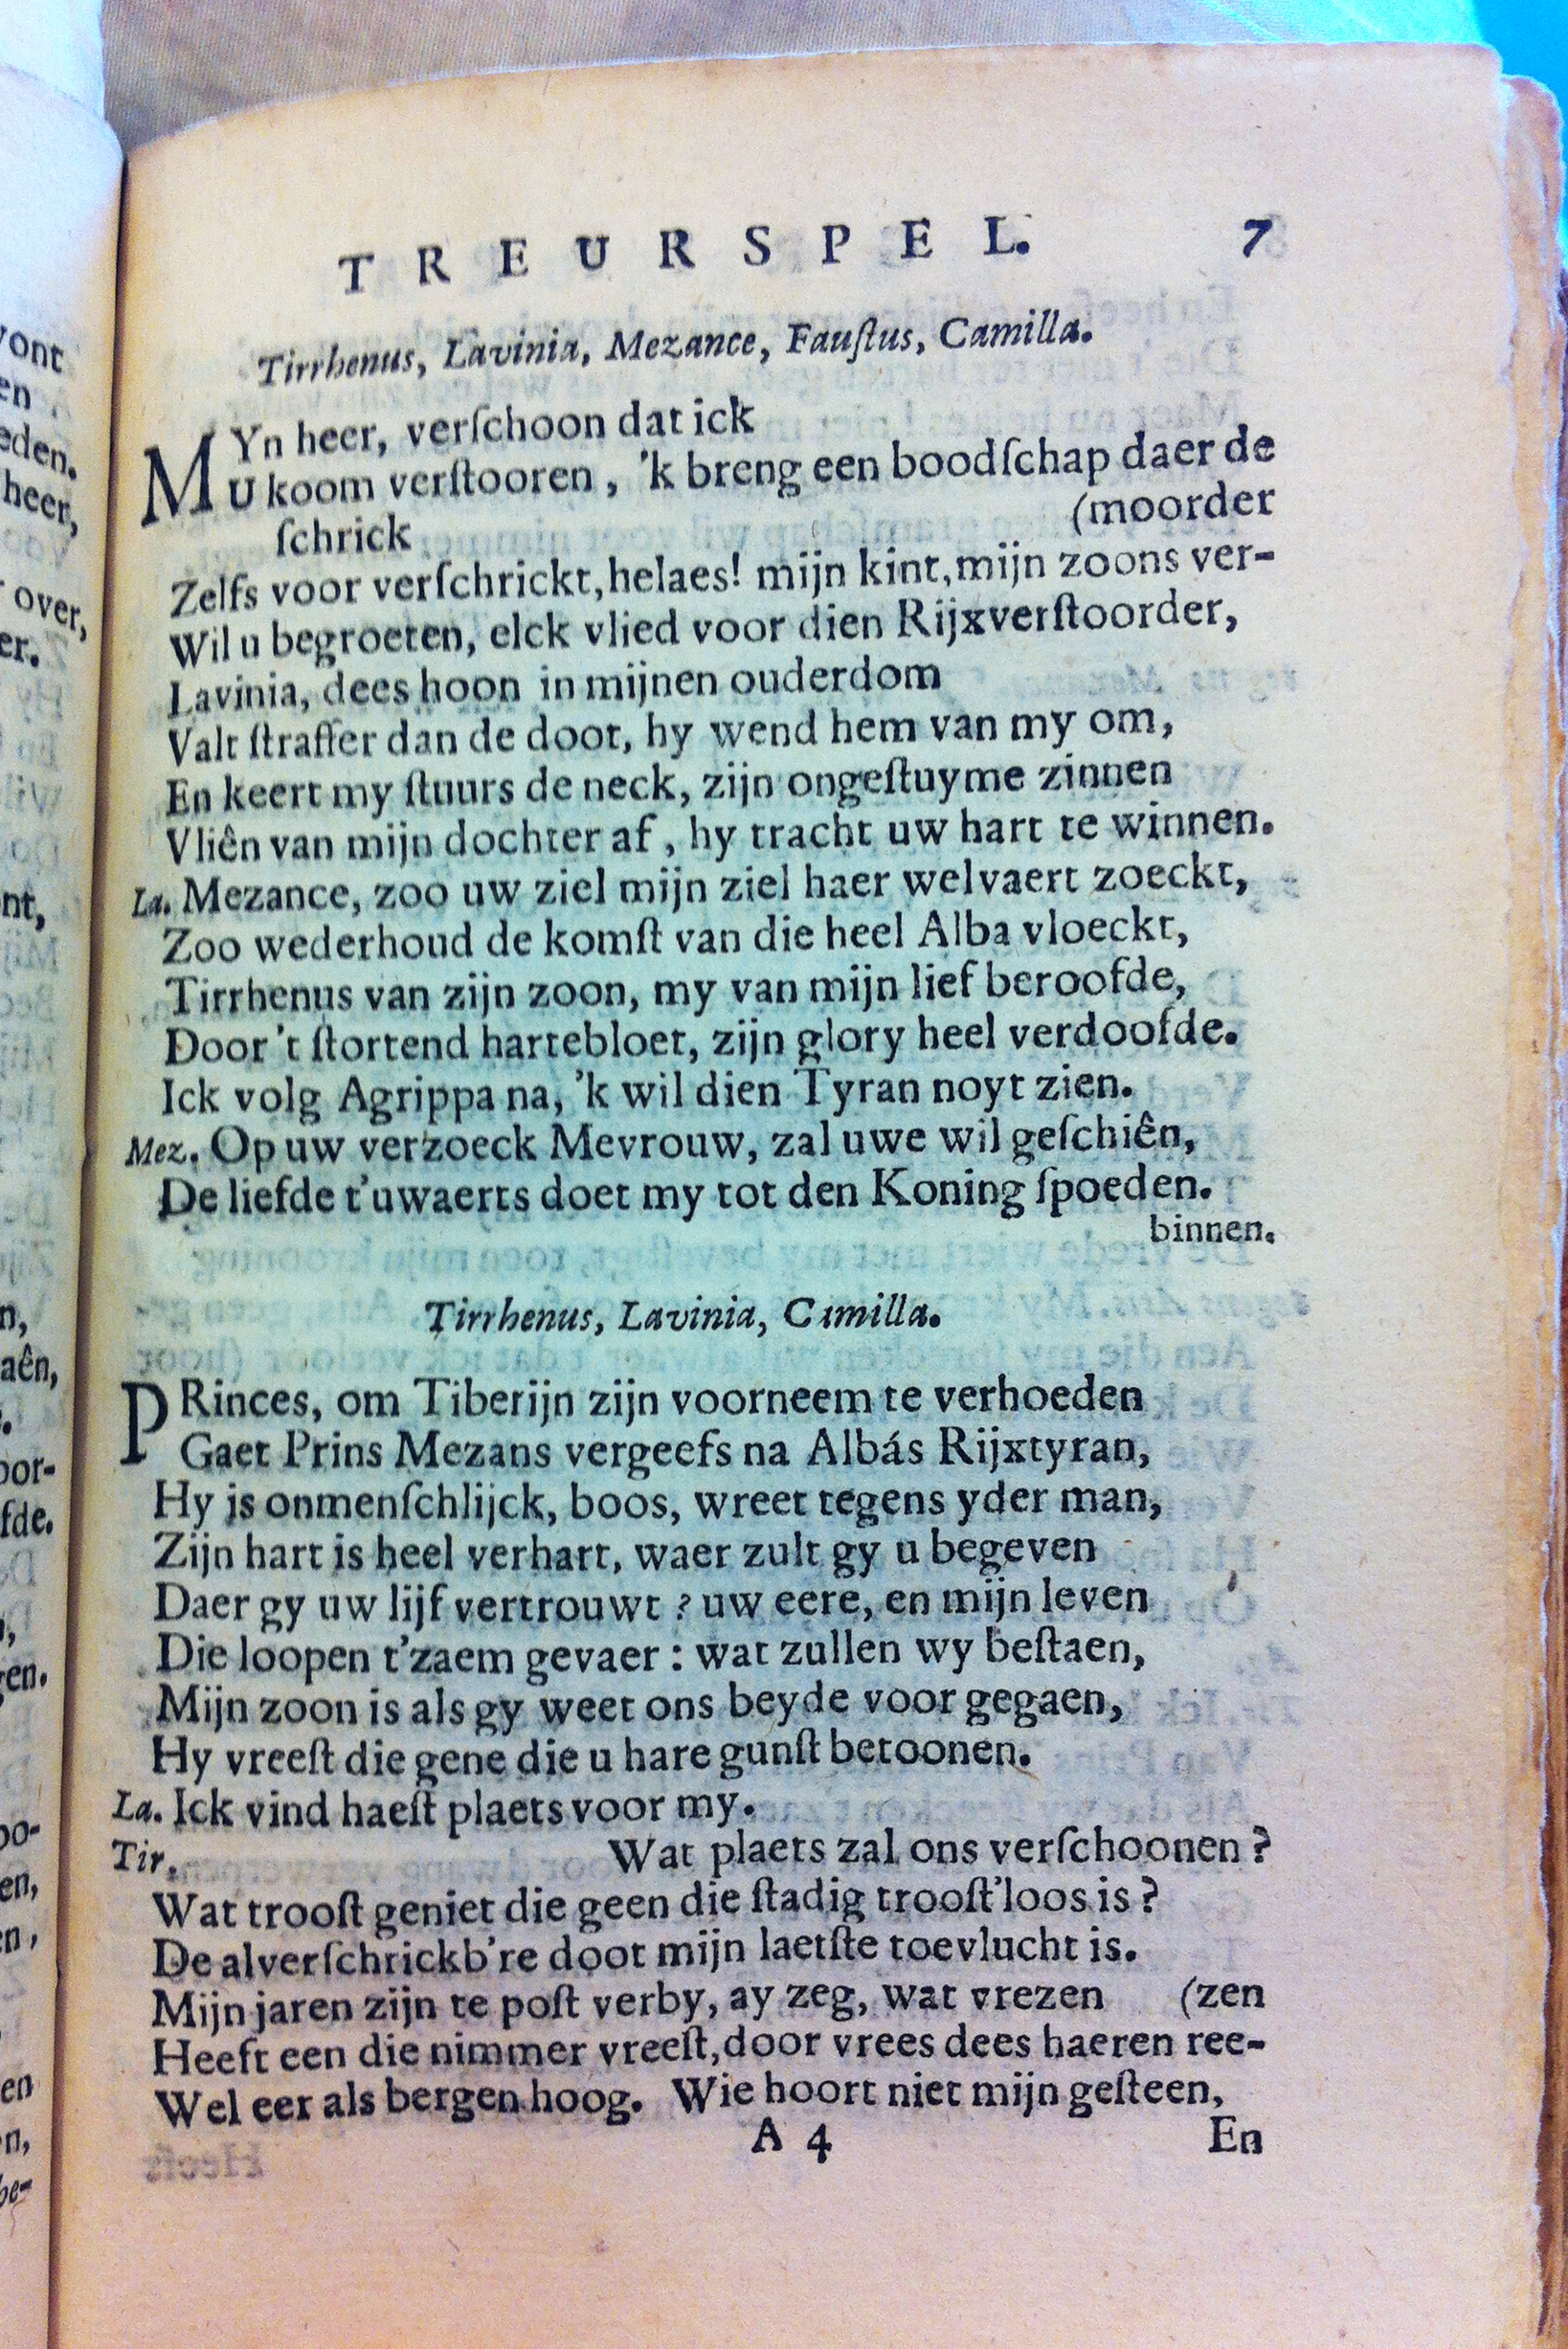 TREURSPEL. 7
Tirrhenus, Lavinia, Mezance, Fauſtus, Camilla.
MYn heer, verſchoon dat ick
U koom verſtooren, 'k breng een boodſchap daer de
ſchrick (moorder
Zelfs voor verſchrickt, helaes! mijn kint, mijn zoons ver-
Wil u begroeten, elck vlied voor dien Rijxverſtoorder,
Lavinia, dees hoon in mijnen ouderdom
Valt ſtraffer dan de doot, hy wend hem van my om,
En keert my ſtuurs de neck, zijn ongeſtuyme zinnen
Vliên van mijn dochter af, hy tracht uw hart te winnen.
La. Mezance, zoo uw ziel mijn ziel haer welvaert zoeckt,
Zoo wederhoud de komſt van die heel Alba vloeckt,
Tirrhenus van zijn zoon, my van mijn lief beroofde,
Door 't ſtortend hartebloet, zijn glory heel verdoofde.
Ick volg Agrippa na, 'k wil dien Tyran noyt zien.
Mez. Op uw verzoeck Mevrouw, zal uwe wil geſchiên,
De liefde t'uwaerts doet my tot den Koning ſpoeden.
binnen.
Tirrhenus, Lavinia, Camilla.
PRinces, om Tiberijn zijn voorneem te verhoeden
Gaet Prins Mezans vergeefs na Albás Rijxtyran,
Hy is onmenſchlijck, boos, wreet tegens yder man,
Zijn hart is heel verhart, waer zult gy u begeven
Daer gy uw lijf vertrouwt? uw eere, en mijn leven
Die loopen t'zaem gevaer: wat zullen wy beſtaen,
Mijn zoon is als gy weet ons beyde voor gegaen,
Hy vreeſt die gene die u hare gunſt betoonen.
La. Ick vind haeſt plaets voor my.
Tir. Wat plaets zal ons verſchoonen?
Wat trooſt geniet die geen die ſtadig trooſt'loos is?
De alverſchrickb're doot mijn laetſte toevlucht is.
Mijn jaren zijn te poſt verby, ay zeg, wat vrezen (zen
Heeft een die nimmer vreeſt, door vrees dees haeren ree-
Wel eer als bergen hoog. Wie hoort niet mijn geſteen,
A 4 En